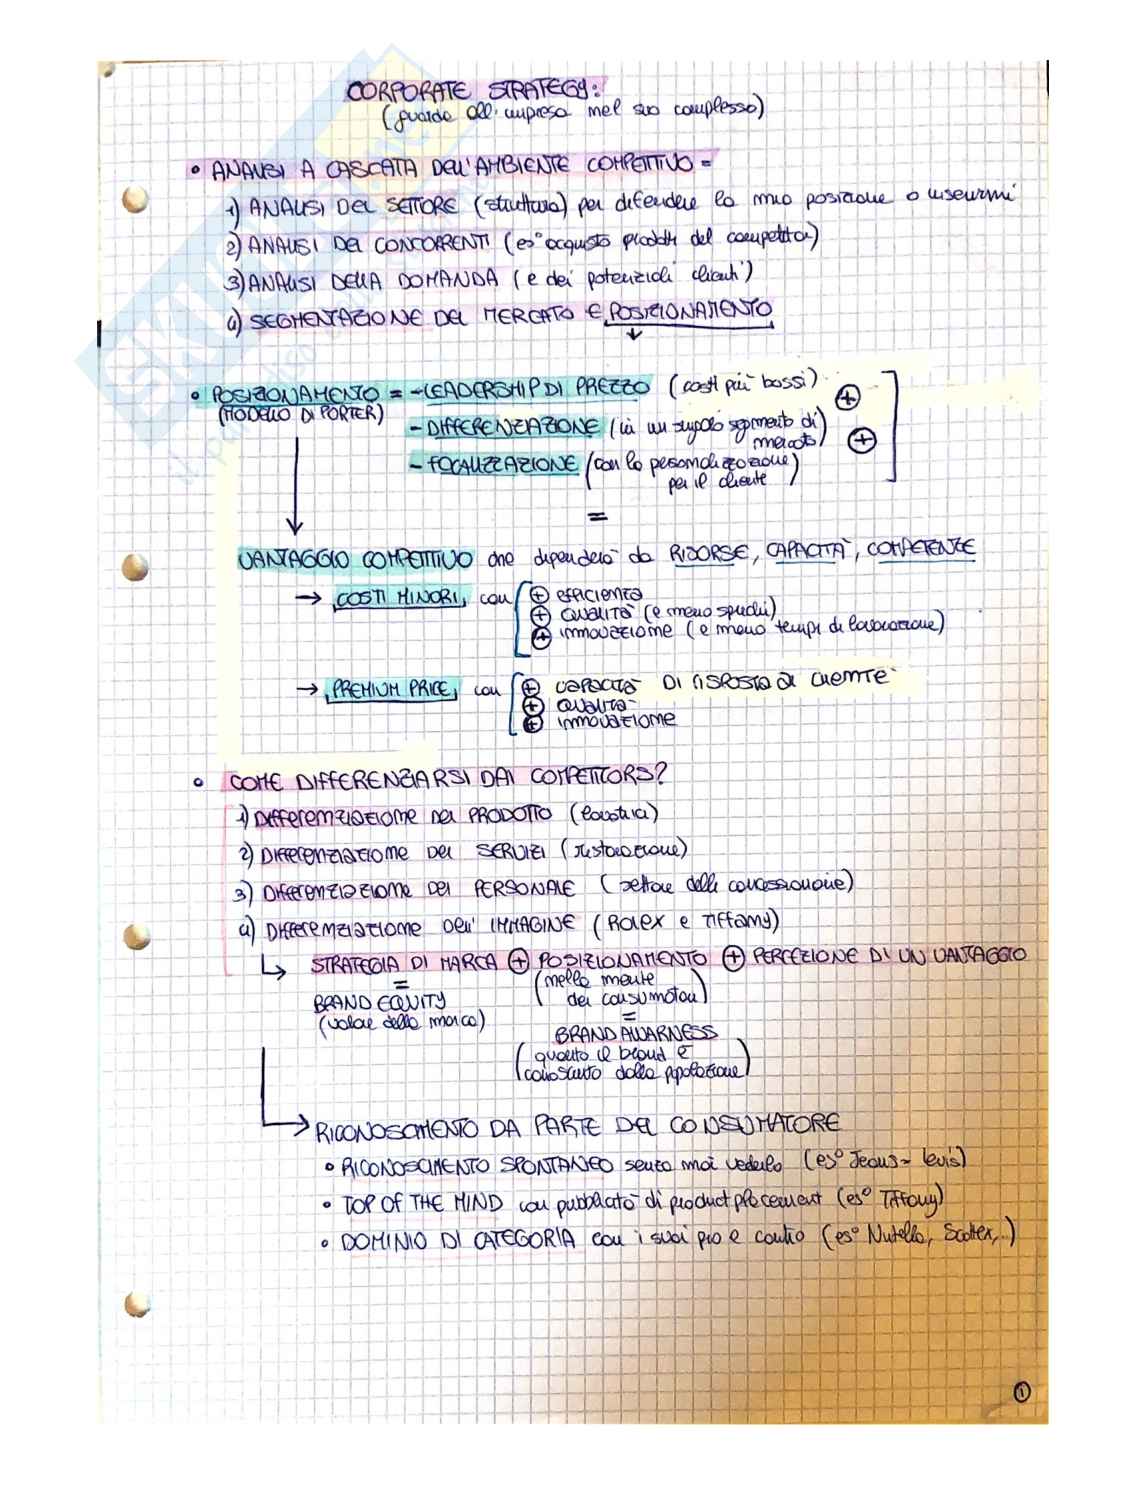 CORPORATE STRATEGY:
(guarda all'impresa nel suo complesso)
• ANALISI A CASCATA DELL'AMBIENTE COMPETITIVO =
1) ANALISI DEL SETTORE (struttura) per difendere la mia posizione o inserirmi
2) ANALISI DEI CONCORRENTI (es° acquisto prodotti del competitor)
3) ANALISI DELLA DOMANDA (e dei potenziali clienti)
4) SEGMENTAZIONE DEL MERCATO E POSIZIONAMENTO
↓
• POSIZIONAMENTO = - LEADERSHIP DI PREZZO (costi più bassi)
(MODELLO DI PORTER)
⊕
- DIFFERENZIAZIONE (in un singolo segmento di mercato)
⊕
- FOCALIZZAZIONE (con la personalizzazione per il cliente)
=
VANTAGGIO COMPETITIVO che dipenderà da RISORSE, CAPACITÀ, COMPETENZE
→ COSTI MINORI, con ⊕ efficienza
⊕ QUALITÀ (e meno sprechi)
⊕ innovazione (e meno tempi di lavorazione)
→ PREMIUM PRICE, con ⊕ CAPACITÀ DI RISPOSTA AL CLIENTE
⊕ QUALITÀ
⊕ innovazione
• COME DIFFERENZIARSI DAI COMPETITORS?
1) Differenziazione DEL PRODOTTO (lavatrici)
2) Differenziazione DEI SERVIZI (ristorazione)
3) Differenziazione DEL PERSONALE (settore delle concessionarie)
4) Differenziazione DELL'IMMAGINE (Rolex e Tiffany)
↳ STRATEGIA DI MARCA ⊕ POSIZIONAMENTO ⊕ PERCEZIONE DI UN VANTAGGIO
(nella mente dei consumatori)
=
BRAND EQUITY
(valore della marca)
=
BRAND AWARNESS
(quanto il brand è conosciuto dalla popolazione)
→ RICONOSCIMENTO DA PARTE DEL CONSUMATORE
• RICONOSCIMENTO SPONTANEO senza mai vederlo (es° Jeans - Levis)
• TOP OF THE MIND con pubblicità di product placement (es° Tiffany)
• DOMINIO DI CATEGORIA con i suoi pro e contro (es° Nutella, Scottex,..)
1